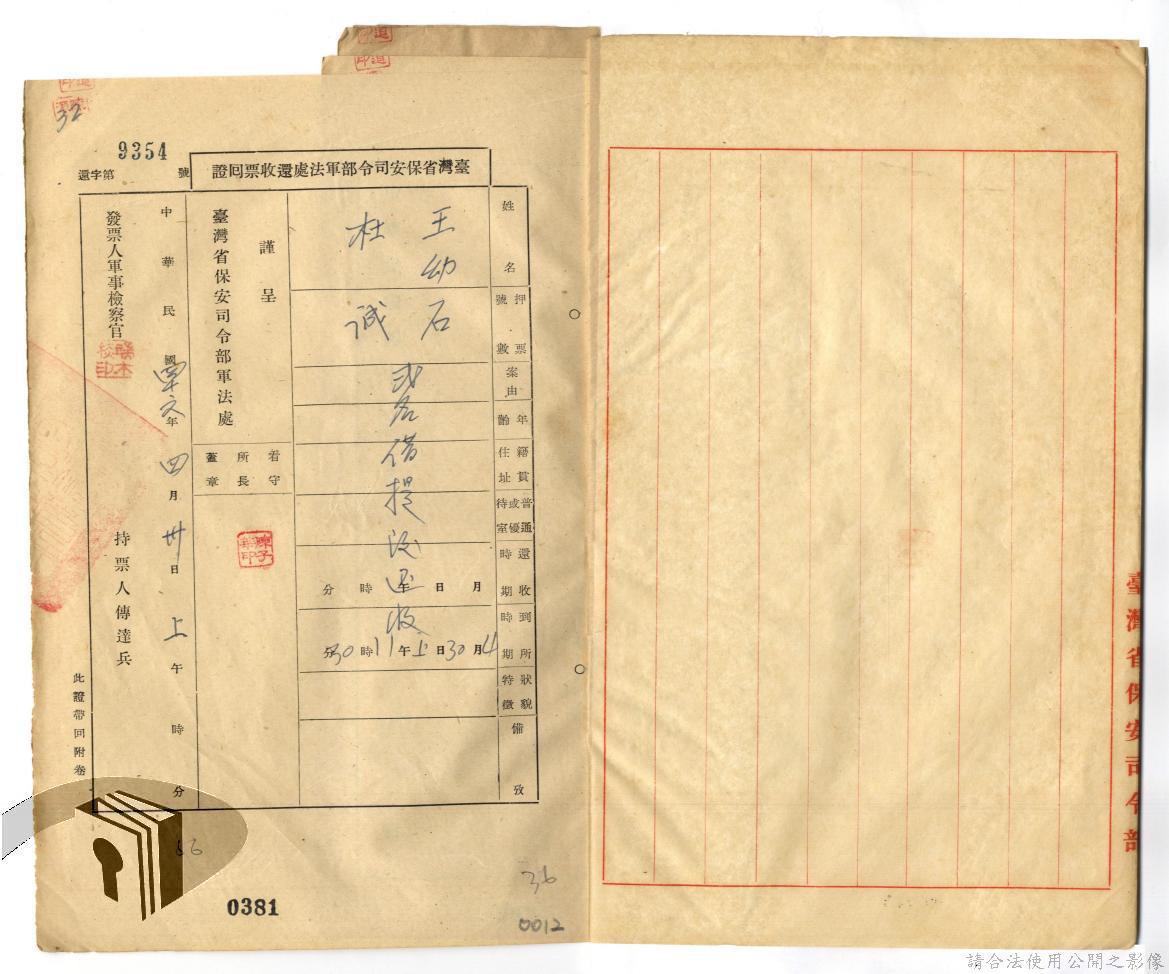 臺灣省保安司令部
臺灣省保安司令部軍法處還收票回證
還字第 9354 號
姓名
王幼石
杜誠
貳名借提後還收
押票號數
案由
年齡
籍貫住址
普通或優待室
還收時期
月 日 午 時 分
到所時期
4月30日上午11時30分
特徵狀貌
備攷
謹呈
臺灣省保安司令部軍法處
看守所所長蓋章
中華民國 年四月卅日上午 時 分
發票人軍事檢察官
持票人傳達兵
此證帶回附卷
32
66
0381
36
0012
請合法使用公開之影像